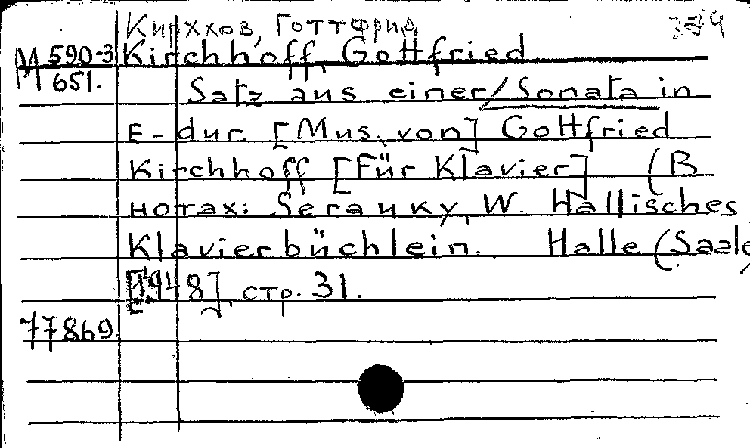 Кирхков, Готтфрид
М 590-3 Kirchhoff, Gottfried
651. Satz aus einer/Sonata in
E-dur. [Mus. von] Gottfried
Kirchhoff [Für Klavier] (В
нотах: Serauky, W. Hallisches
Klavierbüchlein. Halle (Saale
[1948], стр. 31.
77869